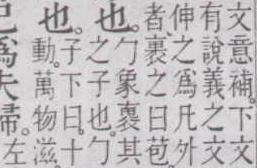 文意補。下文
有說義之文
伸之爲凡外
者裹之曰苞
也。
勹象裹其
之子也。勹
也。
子下曰。十
動。萬物滋
爲夫婦。左